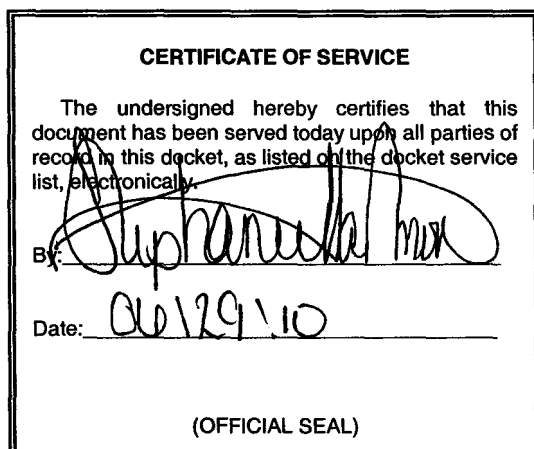 CERTIFICATE OF SERVICE
The undersigned hereby certifies that this
document has been served today upon all parties of
record in this docket, as listed on the docket service
list, electronically.
By:
Date: 06/29/10
(OFFICIAL SEAL)